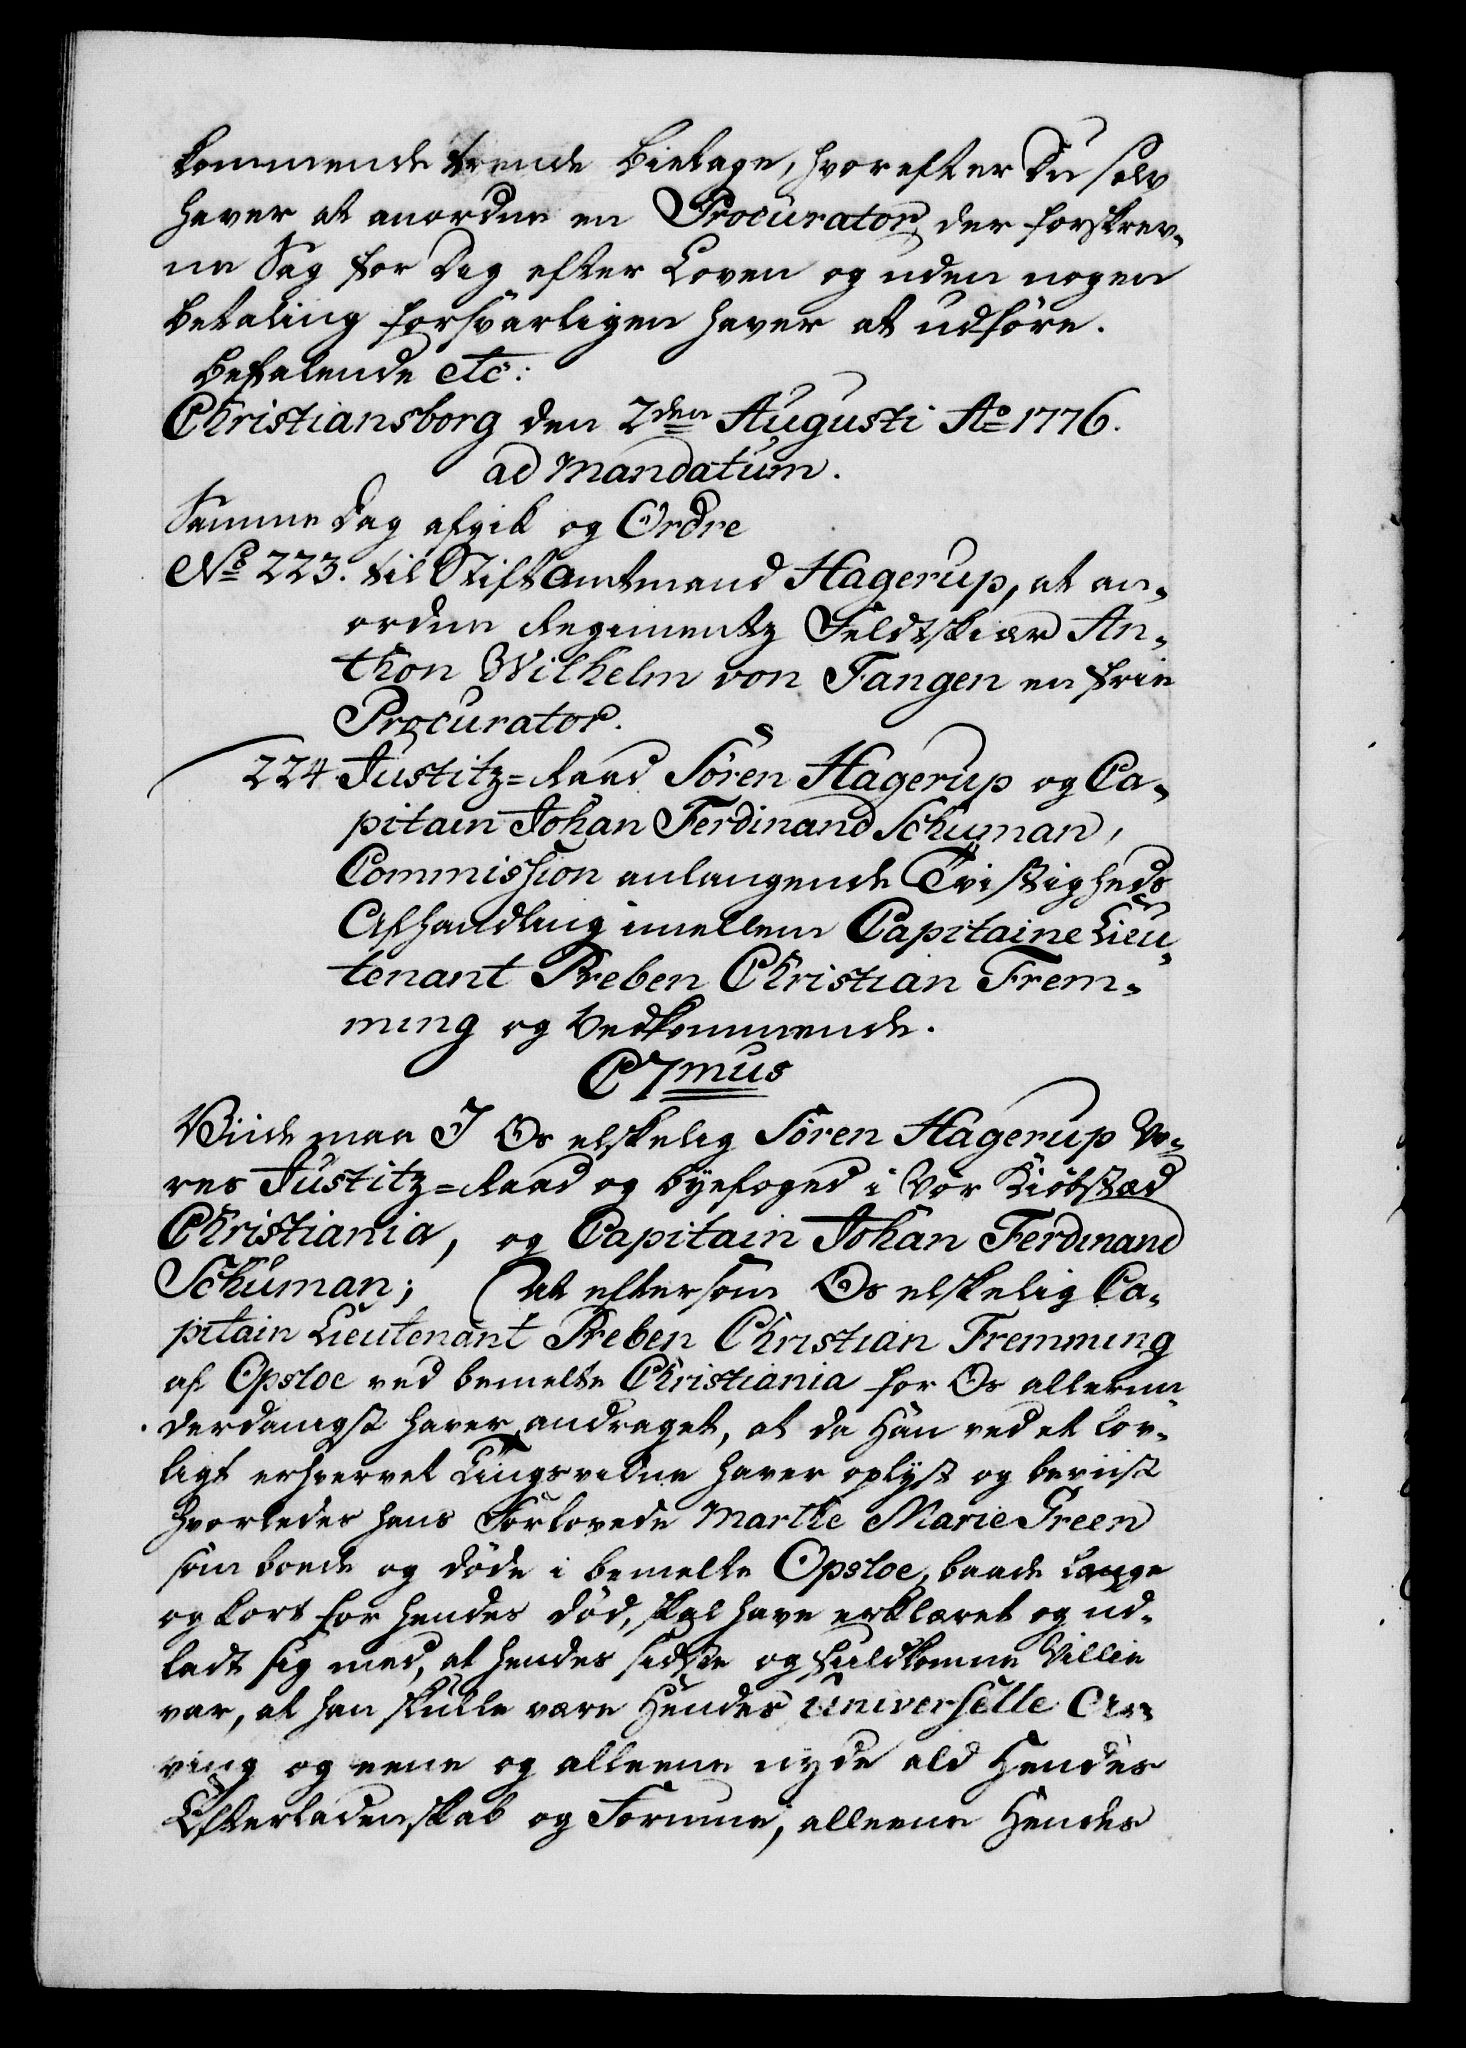 kommende trende Bielage, hvorefter Du selv
haver at anordne en Procurator, der forskrev-
ne Sag for Dag efter Loven og uden nogen
Betaling forsvarligen haver at udføre.
Befalende etc:
Christiansborg den 2den Augusti Ao 1776.
ad mandatum.
Samme Dag afgik og Ordre
No 223. til Stiftamtmand Hagerup, at an-
ordne Regimentz Feldtskiær An-
thon Wilhelm von Fangen en frie
Procurator.
224. Justitz=Raad Sören Hagerup og Ca-
pitain Johan Ferdinand Schuman,
Commission anlangende Tvistigheds
Afhandling imellem Capitaine Lieu-
tenant Preben Christian Frem-
ming og Vedkommende.
C7mus
Viide maa I Os elskelig Sören Hagerup Vo-
res Justitz=Raad og byefoged i Vor Kiöbstæd
Christiania, og Capitain Johan Ferdinand
Schuman; At eftersom Os elskelig Ca-
pitain Lieutenant Preben Christian Fremming
af Opsloe ved bemelte Christiania for Os allerun-
derdanigst haver andraget, at da Han ved et lov-
ligt erhvervet Tingsvidne haver oplyst og beviist
hvorledes hans Forlovede Marthe Marie Green
som boede og döde i bemelte Opsloe, baade længe
og kort for hendes död, skal have erklæret og ud-
ladt sig med, at hendes sidste og fuldkomne Villie
var, at han skulle være Hendes universelle Ar-
ving og eene og alleene nyde ald Hendes
Efterladenskab og Formue, alleene Hendes